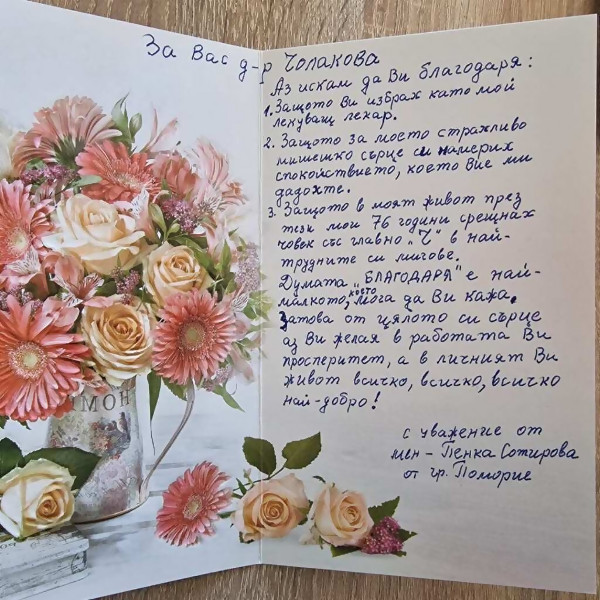 За Вас д-р Чолакова
Аз искам да Ви благодаря:
1. Защото Ви избрах като мой
лекуващ лекар.
2. Защото за моето стражливо
мишешко сърце си намерих
спокойствието, което Вие ми
дадохте.
3. Защото в моят живот през
тези мои 76 години срещнах
човек със главно „Ч" в най-
трудните си мигове.
Думата „БЛАГОДАРЯ" е най-
малкото, което мога да Ви кажа.
Затова от цялото си сърце
аз Ви желая в работата Ви
просперитет, а в личният Ви
живот всичко, всичко, всичко
най-добро!
с уважение от
мен - Пенка Сотирова
от гр. Поморие
МОН